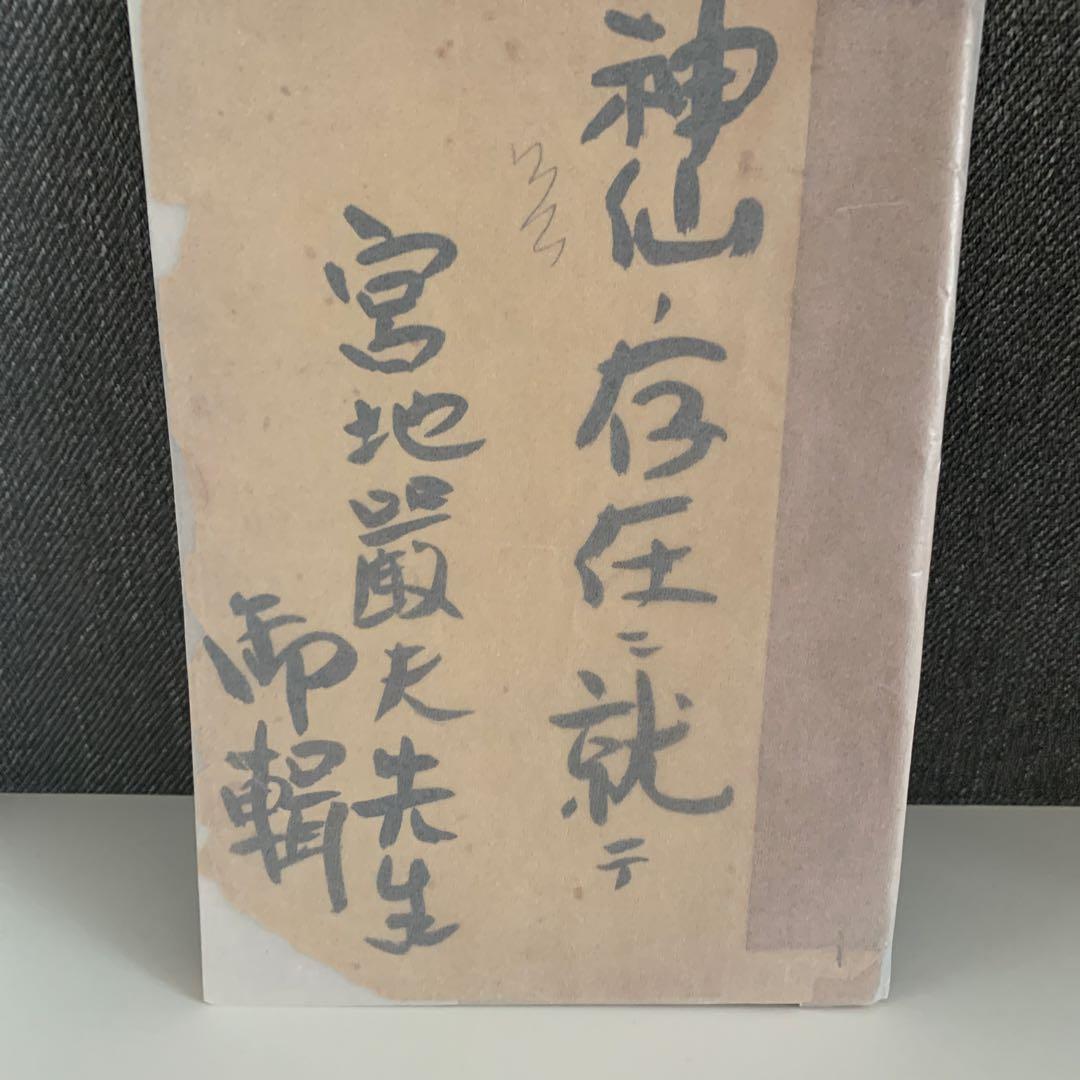 神仙ノ存在ニ就テ
宮地嚴夫先生
御輯